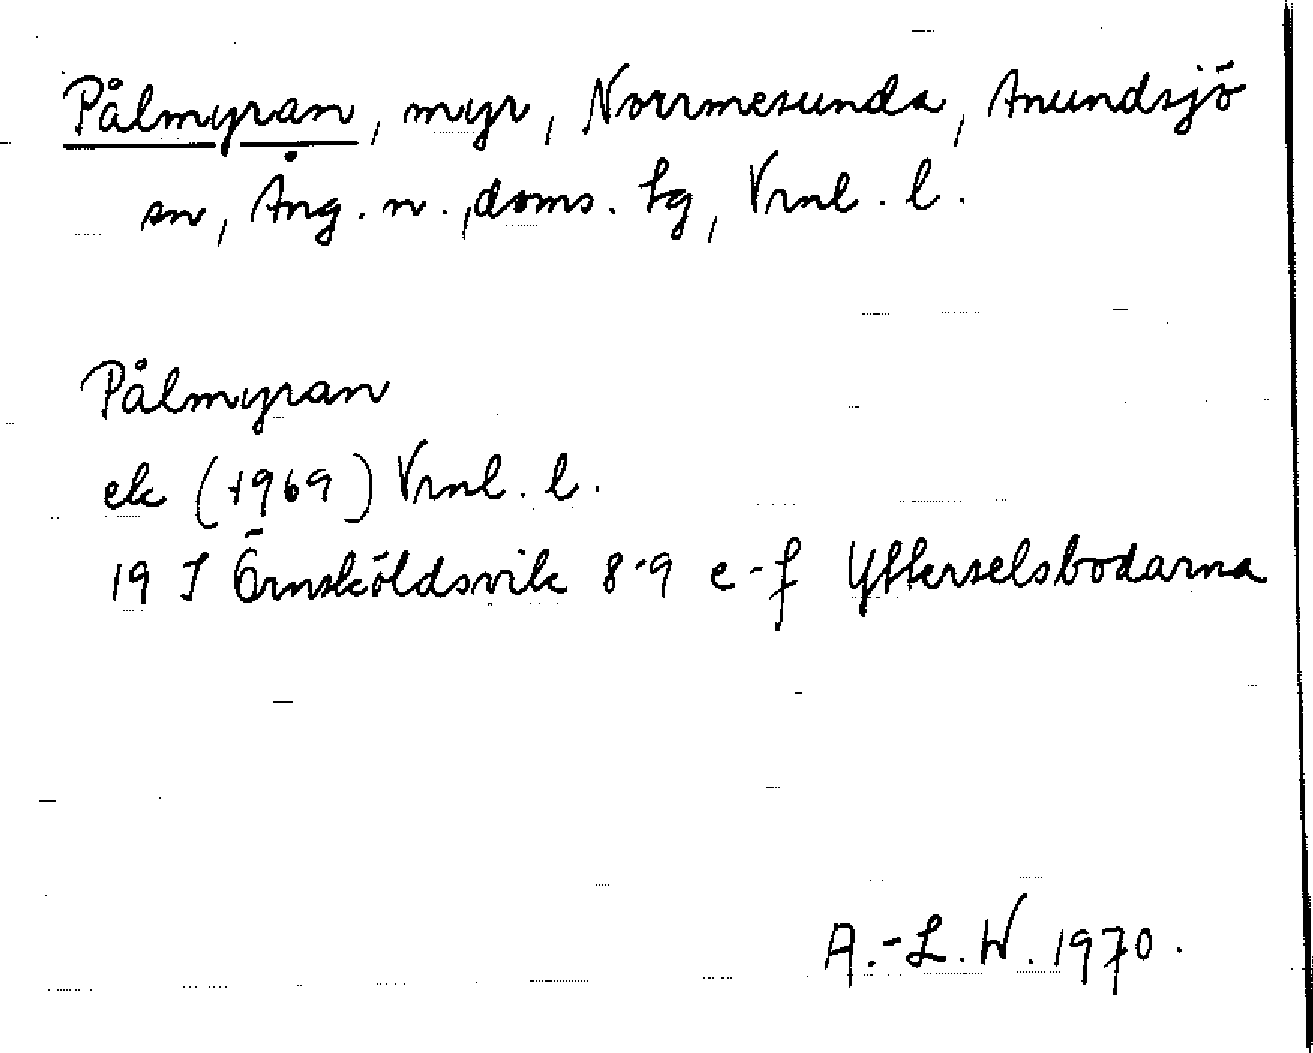 Pålmyran, myr, Norrmesunda, Anundsjö
sn, Ång. n., doms. tg, Vrnl. l.
Pålmyran
ek (1969) Vrnl. l.
19 I Örnsköldsvik 8-9 e-f Ytterselsbodarna
A.-L. W. 1970.